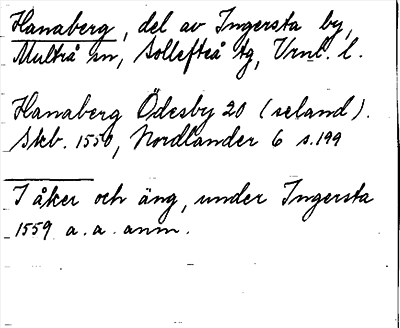 Hanaberg, del av Ingersta by,
Multrå sn, Sollefteå tg, Vrnl. l.
Hanaberg Ödesby 20 (seland).
Skb. 1550, Nordlander 6 s. 199
I åker och äng, under Ingersta
1559 a. a. anm.